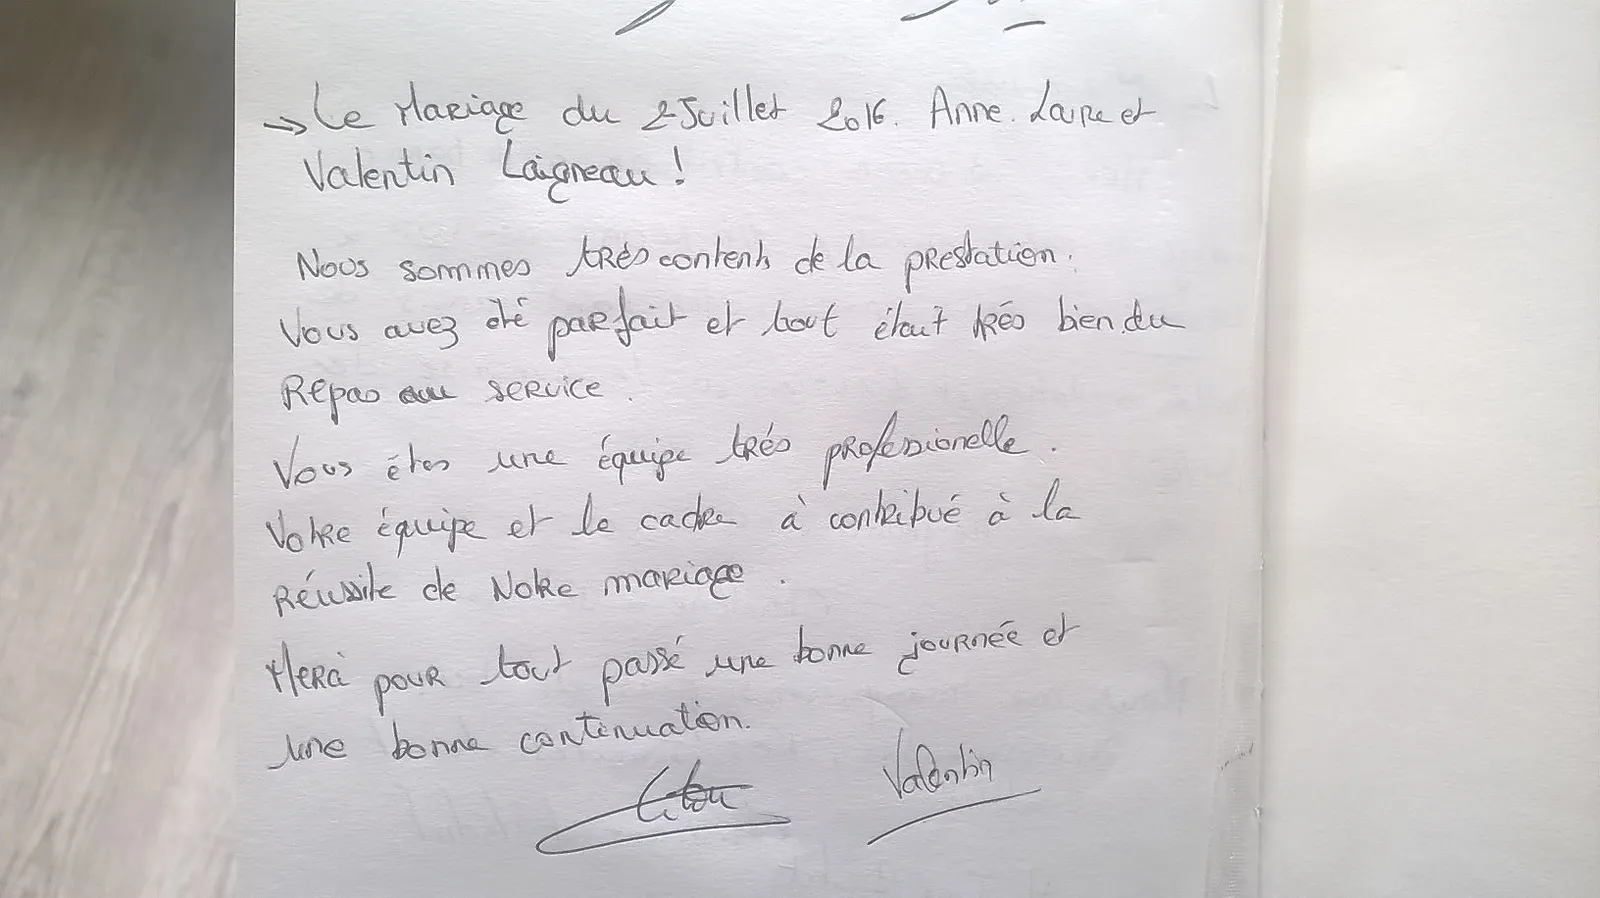 → Le Mariage du 2 Juillet 2016. Anne. Laure et
Valentin Laigneau !
Nous sommes trés contents de la prestation.
Vous avez été parfait et tout était trés bien du
Repas au service.
Vous étes une équipe trés professionelle.
Votre équipe et le cadre à contribué à la
Réussite de Notre mariage.
Merci pour tout passé une bonne journée et
une bonne continuation.
Valentin